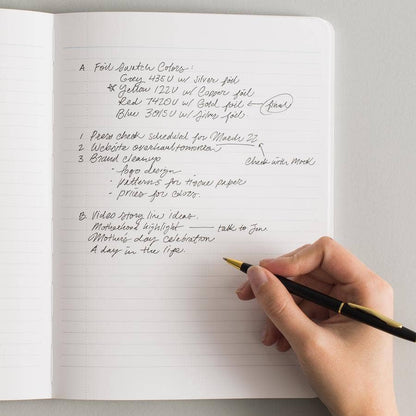 A. Foil Swatch Colors:
Grey 435U w/ Silver foil
* Yellow 122U w/ Copper foil
Red 7420U w/ Gold foil ← final
Blue 3015U w/ Silver foil
1. Press check scheduled for March 22
2. Website overhaul tomorrow
3. Brand cleanup
Check with Mark
- logo design
- patterns for tissue paper
- prices for colors.
B. Video story line ideas.
Motherhood highlight — talk to Jen
Mother's day celebration
A day in the life.